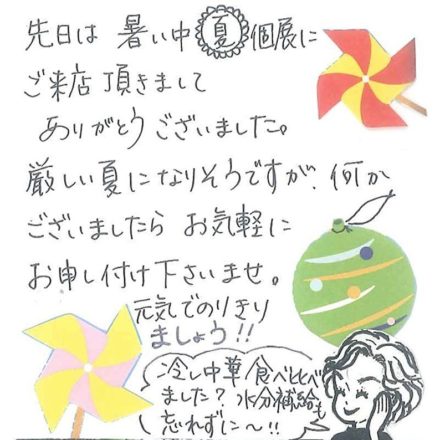 先日は 暑い中 夏 個展に
ご来店 頂きまして
ありがとうございました。
厳しい夏になりそうですが、何か
ございましたら お気軽に
お申し付け下さいませ。
元気でのりきり
ましょう!!
冷し中華 食べに
ました? 水分補給も
忘れずに〜!!